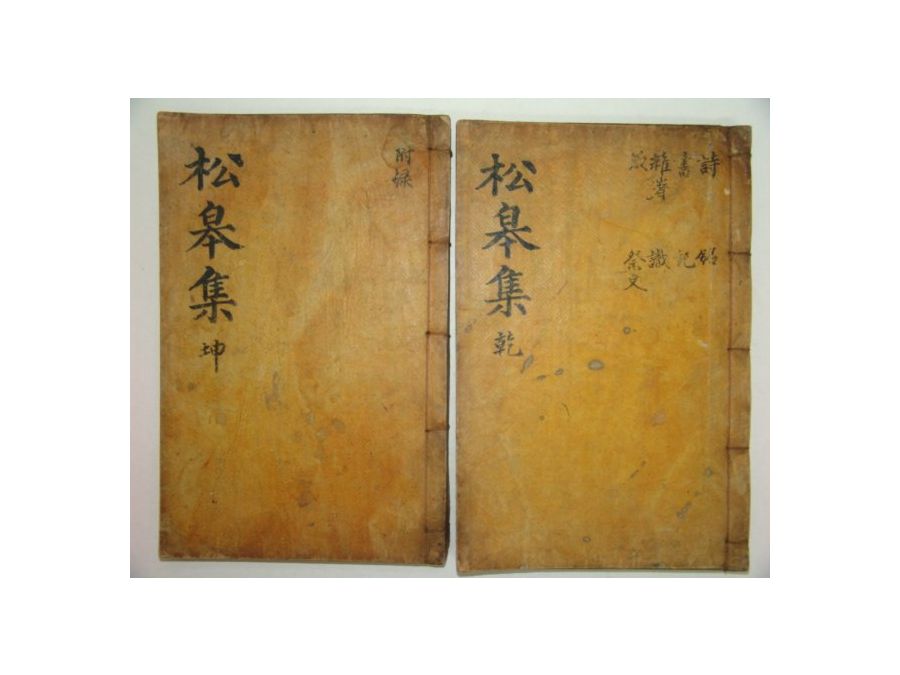 詩 銘
書 記
雜著 識
祭文
松皐集 乾
附録
松皐集 坤